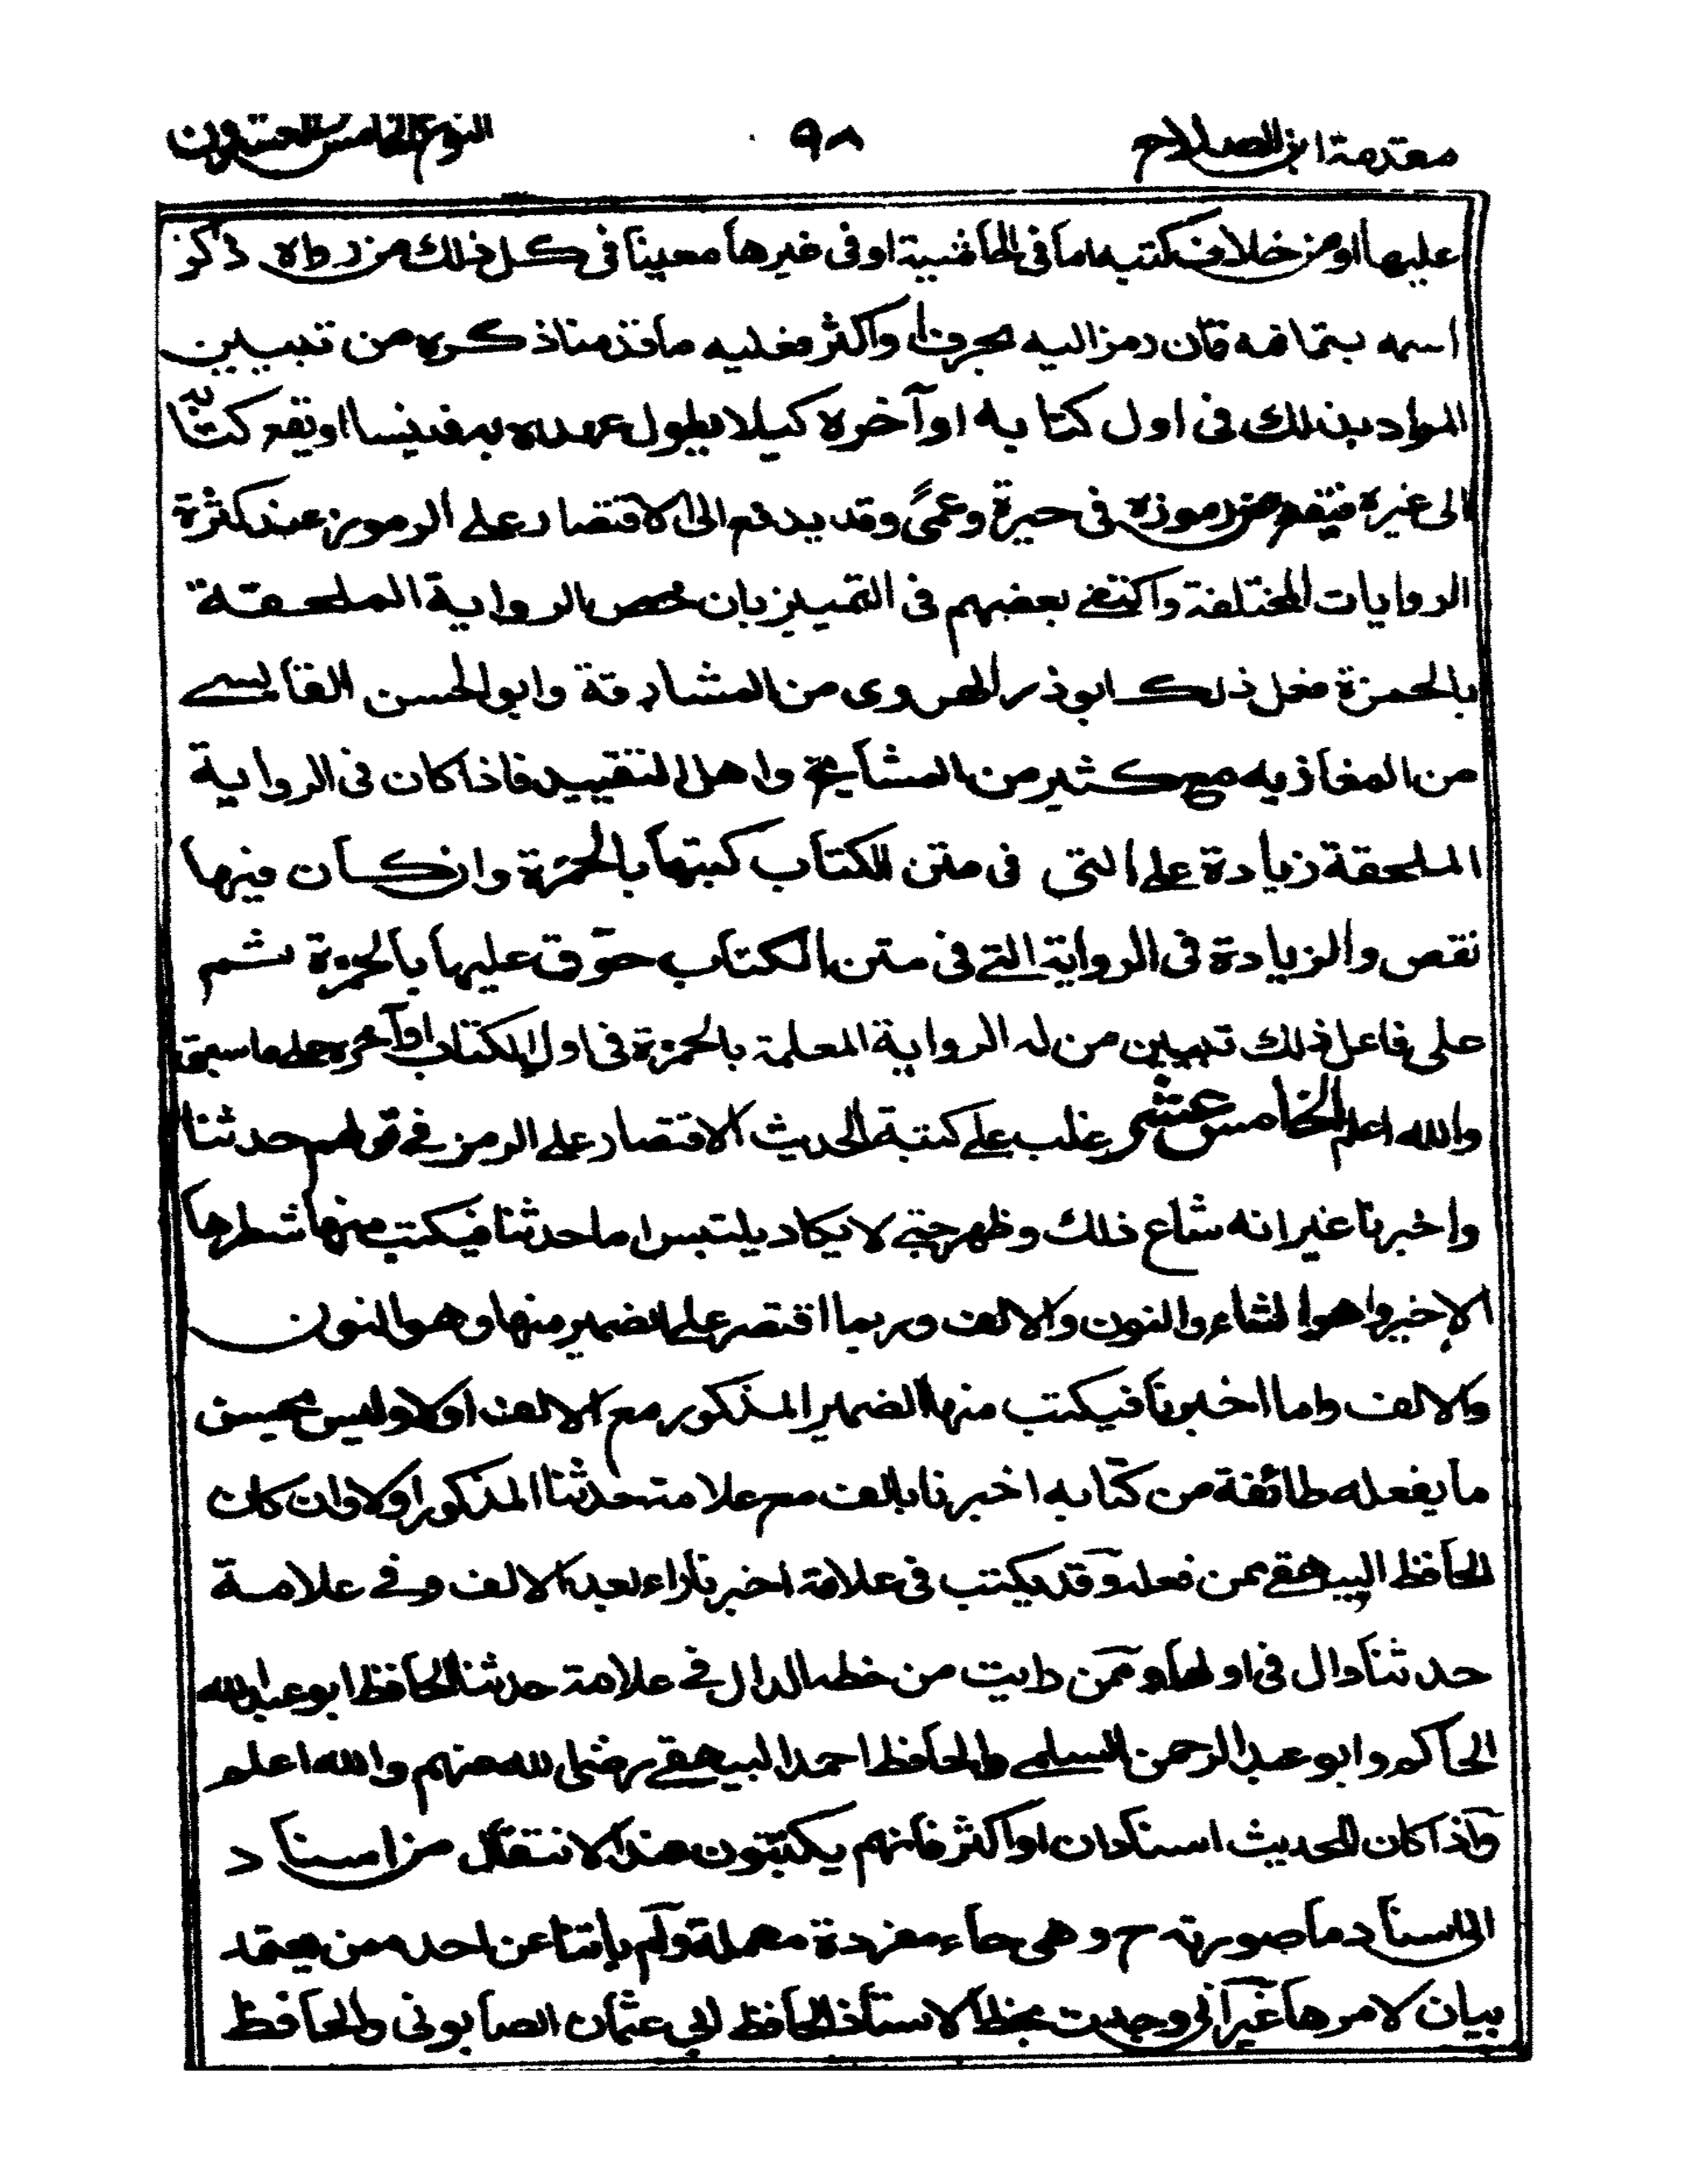 مقدمة ابن الصلاح ٩٨ النوع الخامس والعشرون
عليها او من خلاف كتبه اما فى الحاشية او فى غيرها معينا فى كل ذلك من رواه ذكر
اسمه بتمامه فان رمز اليه بحرف او اكثر فعليه ما قدمنا ذكره من تبيين
المراد بذلك فى اول كتابه او آخره كيلا يطول عهده به فينسا او يقع كتابه
الى غيره فيقع من رموزه فى حيرة وعمًى وقد يدفع الى الاقتصار على الرموز عند كثرة
الروايات المختلفة واكتفى بعضهم فى التمييز بان خص الرواية الملحقة
بالحمرة فعل ذلك ابو ذر الهروى من المشارقة وابو الحسن القابسے
من المغاربه مع كثير من المشايخ واهل التقييد فاذا كان فى الرواية
الملحقة زيادة على التى فى متن الكتاب كتبها بالحمرة وان كان فيها
نقص والزيادة فى الرواية التے فى متن الكتاب حوّق عليها بالحمرة ثم
على فاعل ذلك تبيين من له الرواية المعلمة بالحمرة فى اول الكتاب او آخره على ما سبق
والله اعلم الخامس عشر غلب على كتبة الحديث الاقتصار على الرمز فے قولهم حدثنا
واخبرنا غير انه شاع ذلك وظهر حتے لا يكاد يلتبس اما حدثنا فيكتب منها شطرها
الاخير واهو الثاء والنون والالف وربما اقتصر على الضمير منها وهو النون
والالف واما اخبرنا فيكتب منها الضمير المذكور مع الالف اولا وليس بحسن
ما يفعله طائفة من كتابه اخبرنا بالف مع علامة حدثنا المذكور اولا وان كان
الحافظ البيهقے ممن فعله وقد يكتب فى علامة اخبرنا راء بعد الالف وفے علامة
حدثنا دال فى اولها وممن رايت من خطه الدال فے علامة حدثنا الحافظ ابو عبد الله
الحاكم وابو عبد الرحمن السلمے والحافظ احمد البيهقے رضى الله عنهم والله اعلم
واذا كان للحديث اسنادان او اكثر فانهم يكتبون عند الانتقال من اسناد
الى اسناد ما صورته ح وهى حاء مفردة مهملة ولم ياتنا عن احد ممن يعتمد
بيان لامرها غير انى وجدت بخط الاستاذ الحافظ ابى عثمان الصابونى والحافظ